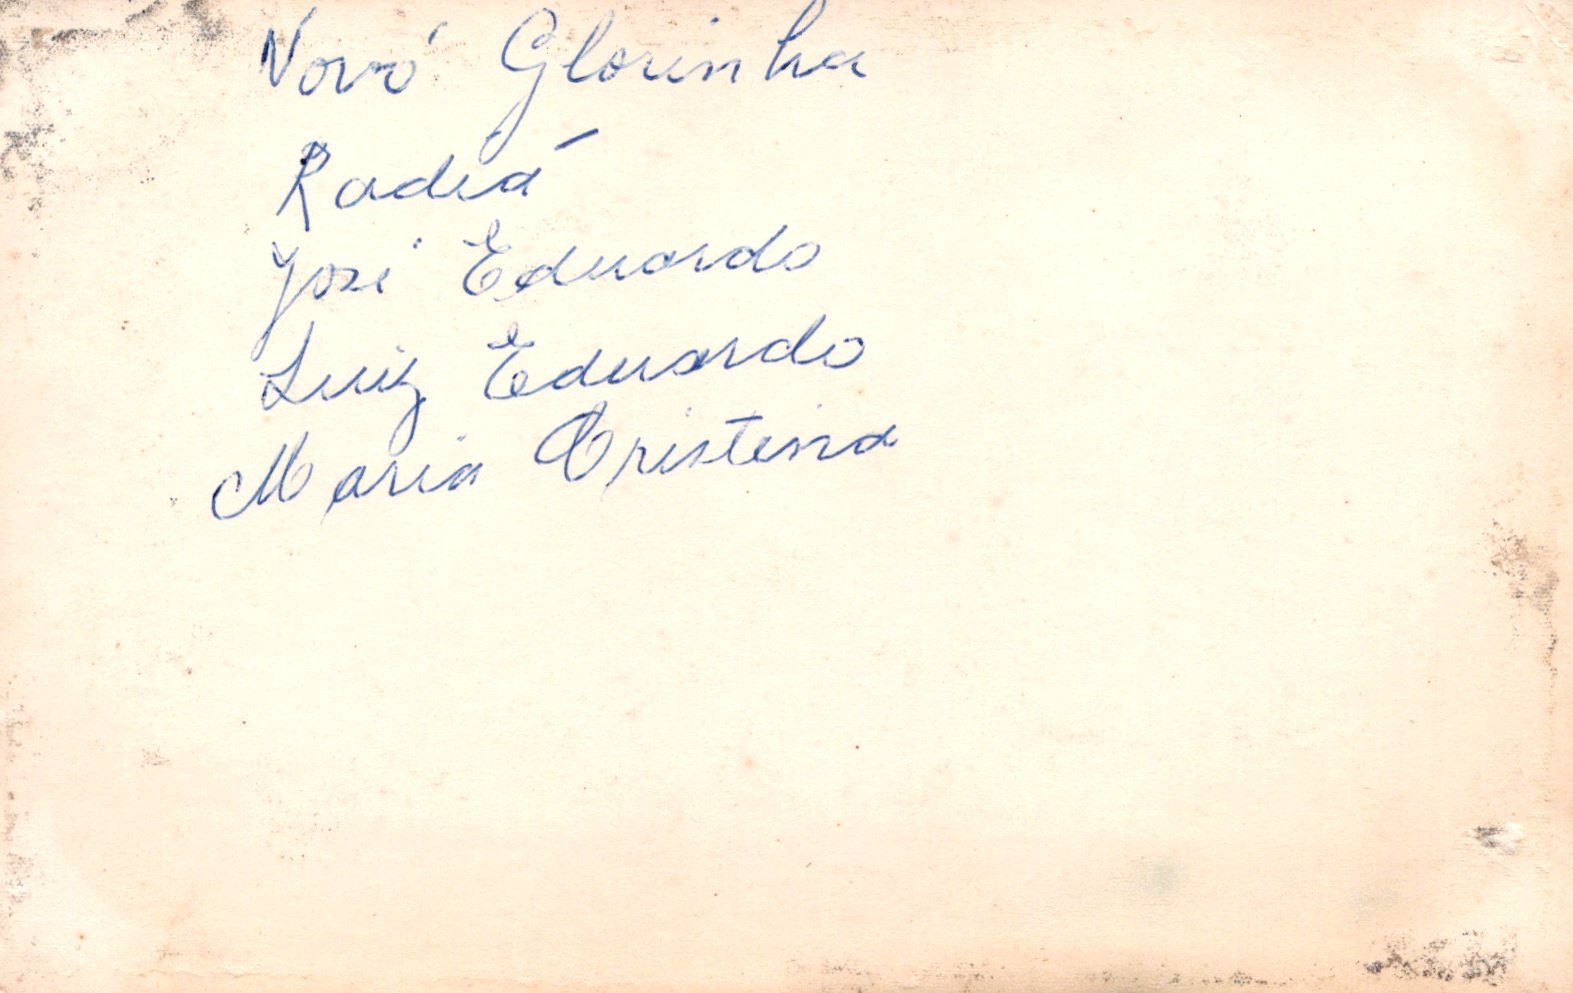 Vovó Glorinha
Radiá
José Eduardo
Luiz Eduardo
Maria Cristina